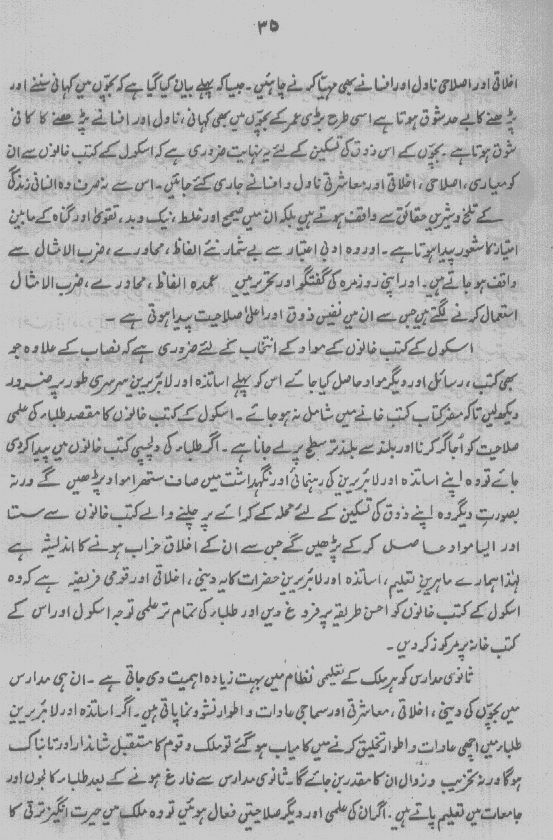 ۳۵
اخلاقی اور اصلاحی ناول اور افسانے بھی مہیا کرنے چاہئیں۔ جیسا کہ پہلے بیان کیا گیا ہے کہ بچّوں میں کہانی سننے اور
پڑھنے کا بے حد شوق ہوتا ہے اسی طرح بڑی عمر کے بچّوں میں بھی کہانی، ناول اور افسانے پڑھنے کا کافی
شوق ہوتا ہے۔ بچّوں کے اس ذوق کی تسکین کے لئے یہ نہایت ضروری ہے کہ اسکول کے کتب خانوں سے ان
کو معیاری، اصلاحی، اخلاقی اور معاشرتی ناول و افسانے جاری کئے جائیں۔ اس سے نہ صرف وہ انسانی زندگی
کے تلخ و شیریں حقائق سے واقف ہوتے ہیں بلکہ ان میں صحیح اور غلط، نیک و بد، تقویٰ اور گناہ کے مابین
امتیاز کا شعور پیدا ہوتا ہے۔ اور وہ ادبی اعتبار سے بے شمار نئے الفاظ، محاورے، ضرب الامثال سے
واقف ہو جاتے ہیں۔ اور اپنی روزمرہ کی گفتگو اور تحریر میں عمدہ الفاظ، محاورے، ضرب الامثال
استعمال کرنے لگتے ہیں جس سے ان میں نفیس ذوق اور اعلیٰ صلاحیت پیدا ہوتی ہے۔
اسکول کے کتب خانوں کے مواد کے انتخاب کے لئے ضروری ہے کہ نصاب کے علاوہ جو
بھی کتب، رسائل اور دیگر مواد حاصل کیا جائے اس کو پہلے اساتذہ اور لائبریرین سرسری طور پر ضرور
دیکھ لیں تاکہ مضر کتاب کتب خانے میں شامل نہ ہو جائے۔ اسکول کے کتب خانوں کا مقصد طلباء کی علمی
صلاحیت کو اُجاگر کرنا اور بلند سے بلند تر سطح پر لے جانا ہے۔ اگر طلباء کی دلچسپی کتب خانوں میں پیدا کر دی
جائے تو وہ اپنے اساتذہ اور لائبریرین کی رہنمائی اور نگہداشت میں صاف ستھرا مواد پڑھیں گے ورنہ
بصورتِ دیگر وہ اپنے ذوق کی تسکین کے لئے محلہ کے کرائے پر چلنے والے کتب خانوں سے سستا
اور ایسا مواد حاصل کر کے پڑھیں گے جس سے ان کے اخلاق خراب ہونے کا اندیشہ ہے
لہٰذا ہمارے ماہرینِ تعلیم، اساتذہ اور لائبریرین حضرات کا یہ دینی، اخلاقی اور قومی فریضہ ہے کہ وہ
اسکول کے کتب خانوں کو احسن طریقہ پر فروغ دیں اور طلباء کی تمام تر علمی توجہ اسکول اور اس کے
کتب خانہ پر مرکوز کر دیں۔
ثانوی مدارس کو ہر ملک کے تعلیمی نظام میں بہت زیادہ اہمیت دی جاتی ہے۔ ان ہی مدارس
میں بچّوں کی دینی، اخلاقی، معاشرتی اور سماجی عادات و اطوار نشو و نما پاتی ہیں۔ اگر اساتذہ اور لائبریرین
طلباء میں اچھی عادات و اطوار تخلیق کرنے میں کامیاب ہو گئے تو ملک و قوم کا مستقبل شاندار اور تابناک
ہوگا ورنہ تخریب و زوال ان کا مقدر بن جائے گا۔ ثانوی مدارس سے فارغ ہونے کے بعد طلباء کالجوں اور
جامعات میں تعلیم پاتے ہیں۔ اگر ان کی علمی اور دیگر صلاحیتیں فعال ہوئیں تو وہ ملک میں حیرت انگیز ترقی کا